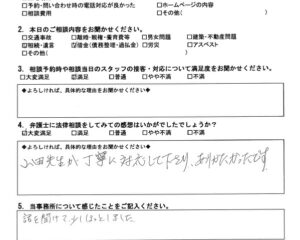 □予約・問い合わせ時の電話対応が良かった □ホームページの内容
□相談費用 □その他( )
2. 本日のご相談内容をお聞かせください。
□交通事故 □離婚・親権・養育費等 □男女問題 □建築・不動産問題
☑相続・遺言 ☑借金(債務整理・過払金) □労災 □アスベスト
□その他( )
3. 相談予約時や相談当日のスタッフの接客・対応について満足度をお聞かせください。
□大変満足 ☑満足 □普通 □やや不満 □不満
◆よろしければ、具体的な理由をお聞かせください◆
4. 弁護士に法律相談をしてみての感想はいかがでしたでしょうか?
☑大変満足 □満足 □普通 □やや不満 □不満
◆よろしければ、具体的な理由をお聞かせください◆
山田先生が丁寧に対応して下さり、ありがたかったです。
5. 当事務所について感じたことをご記入ください。
話を聞けて少しほっとしました